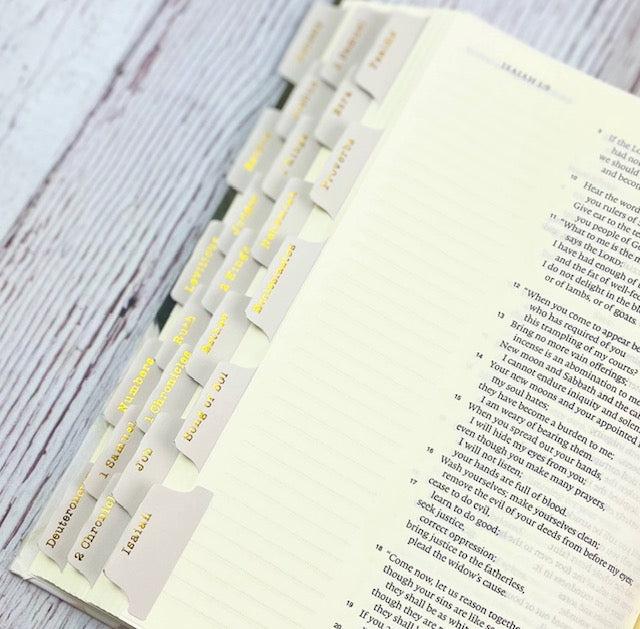 Psalms
Ezra
Proverbs
Nehemiah
Ecclesiastes
Leviticus
2 Kings
Ruth
Esther
Numbers
1 Chronicles
Song of Sol
1 Samuel
Job
Deuterono
2 Chronicl
Isaiah
ISAIAH 1:9
9 If the Lo
had no
we should
and becom
10 Hear the word
you rulers of
Give ear to the te
you people of G
11 "What to me is the m
says the LORD;
I have had enough of
and the fat of well-fee
I do not delight in the bl
or of lambs, or of goats.
12 "When you come to appear be
who has required of you
this trampling of my courts?
13 Bring no more vain offerings;
incense is an abomination to me
New moon and Sabbath and the
I cannot endure iniquity and solem
14 Your new moons and your appointed
my soul hates;
they have become a burden to me;
I am weary of bearing them.
15 When you spread out your hands,
I will hide my eyes from you;
even though you make many prayers,
I will not listen;
your hands are full of blood.
16 Wash yourselves; make yourselves clean;
remove the evil of your deeds from before my eyes;
cease to do evil,
17 learn to do good;
seek justice,
correct oppression;
bring justice to the fatherless,
plead the widow's cause.
18 "Come now, let us reason togethe
though your sins are like sc
they shall be as whi
though they are r
they shall
19 If you a
20